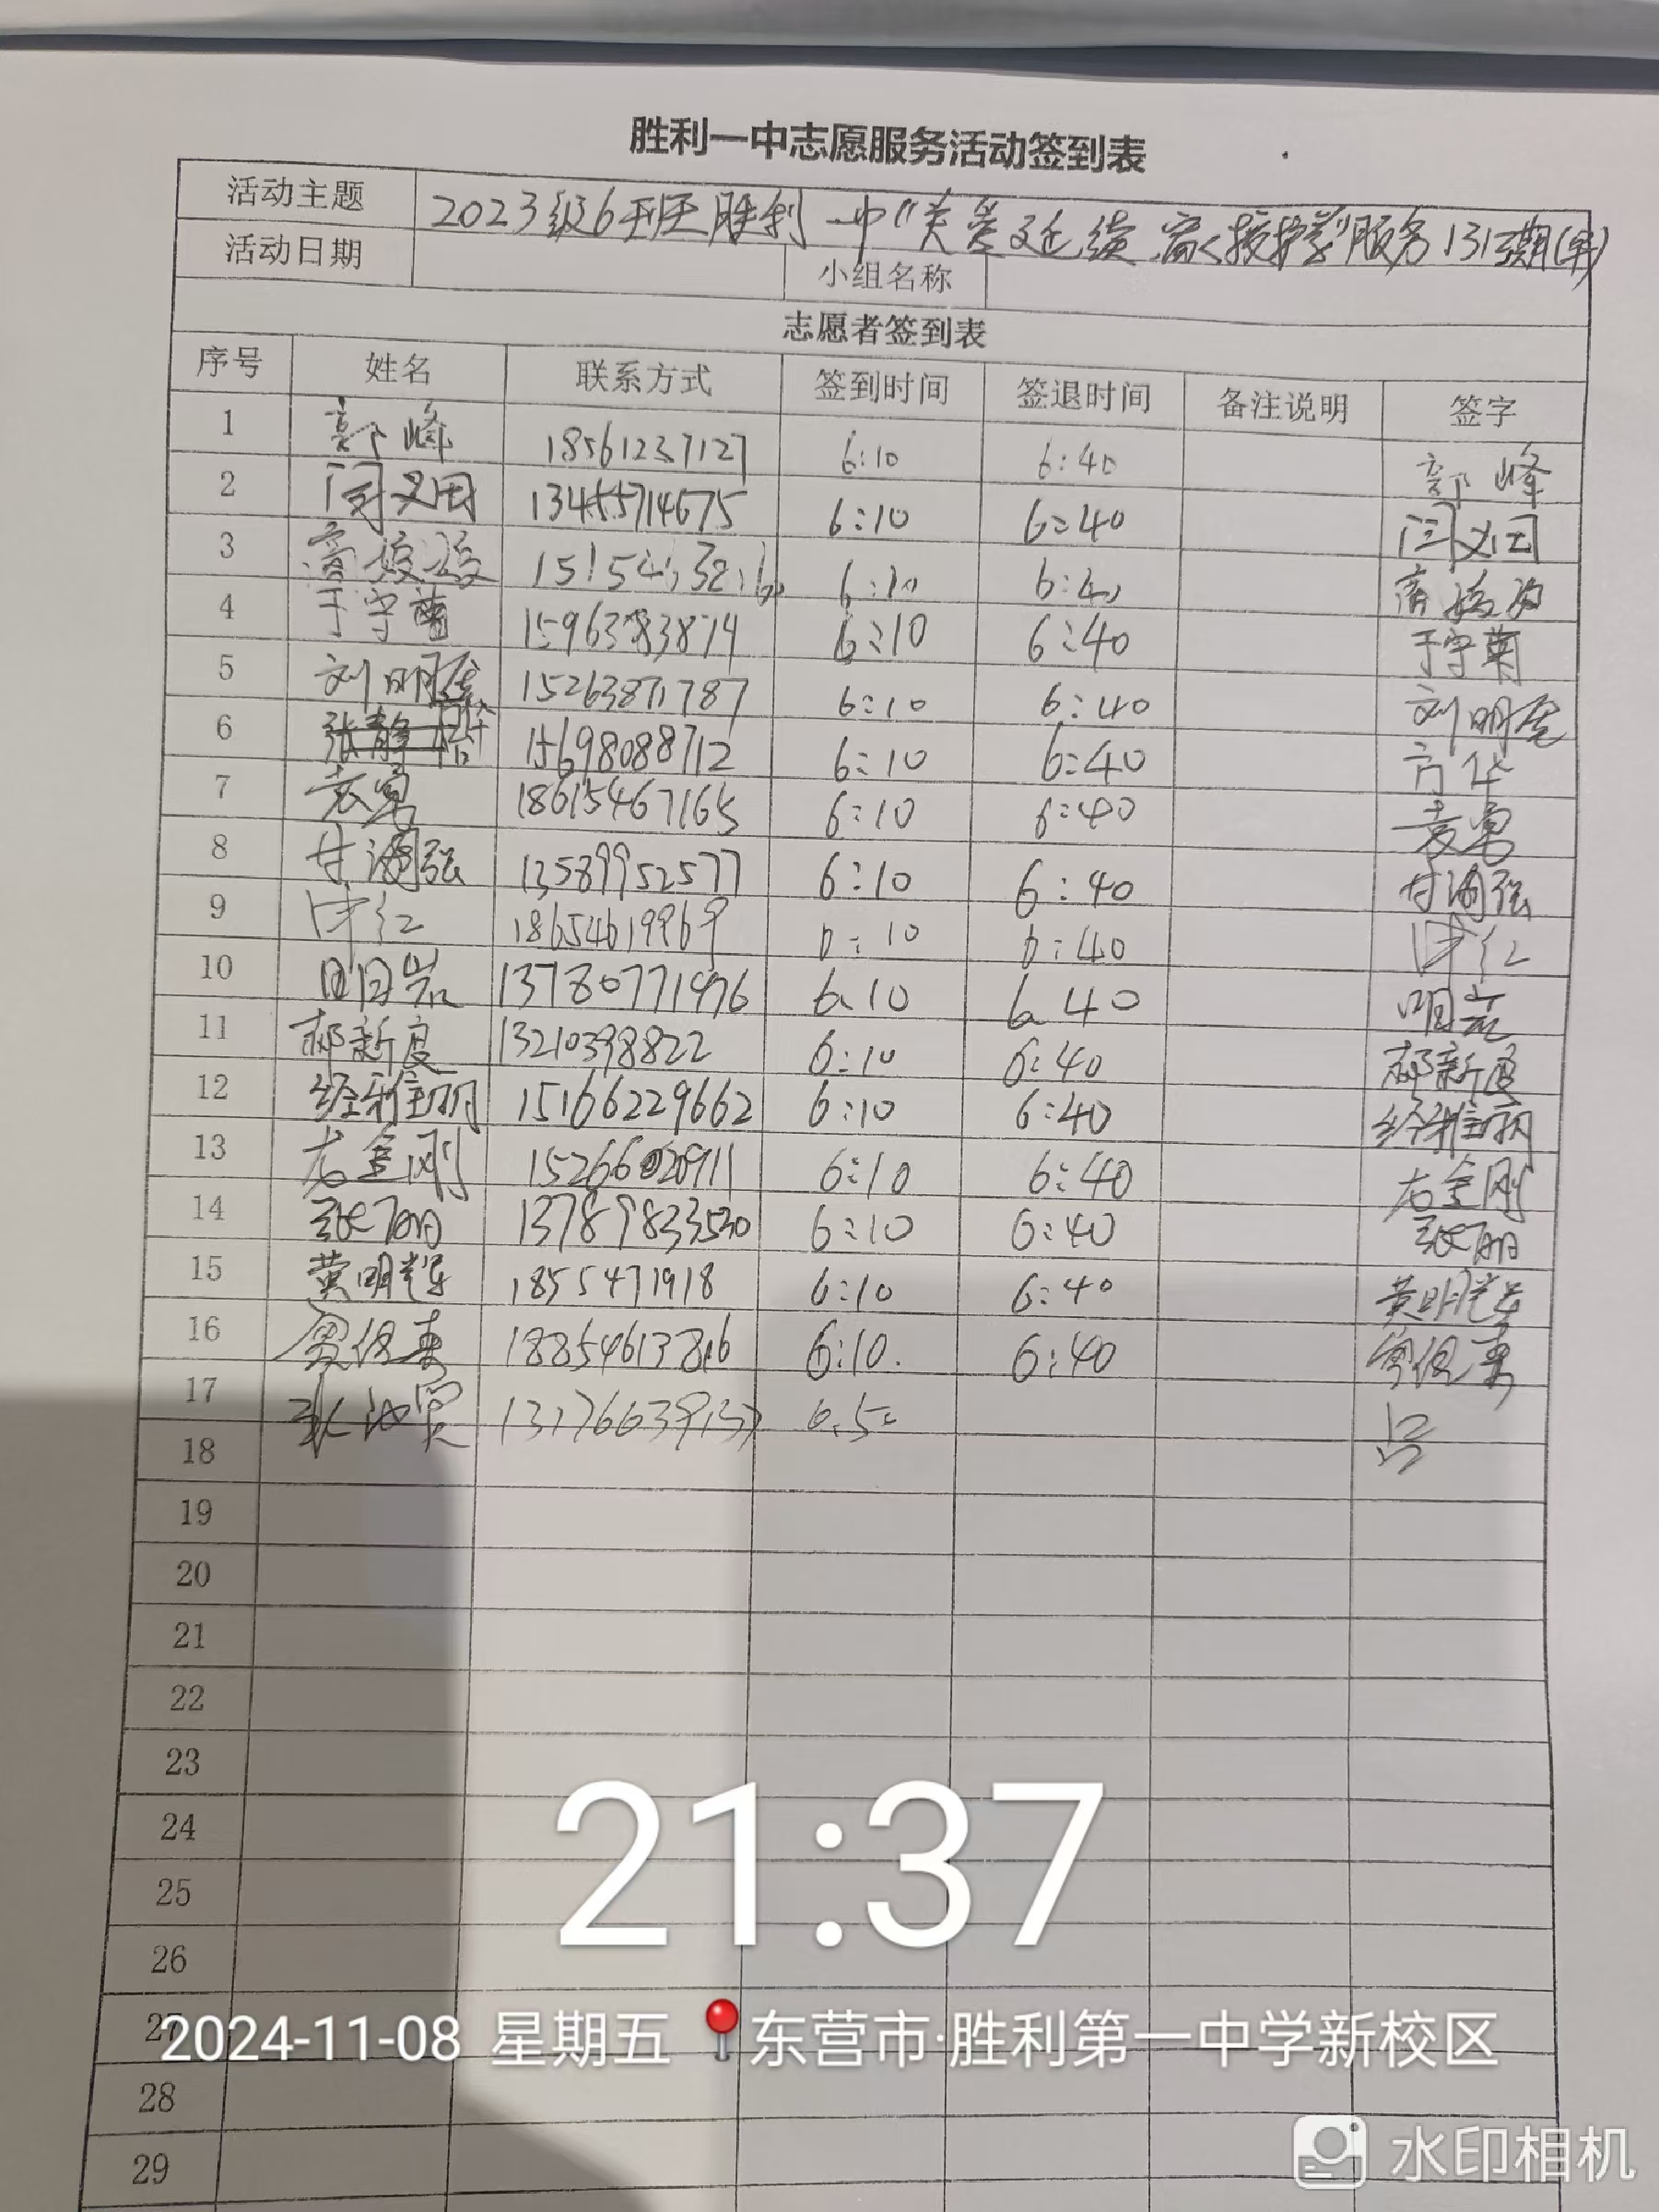 胜利一中志愿服务活动签到表
活动主题 2023级6班胜利一中"关爱延续 离校护学"服务131期(早)
活动日期 小组名称
志愿者签到表
序号 姓名 联系方式 签到时间 签退时间 备注说明 签字
1 郭峰 18561237127 6:10 6:40 郭峰
2 闫义田 13455714675 6:10 6:40 闫义田
3 6:10 6:40
4 于守菊 15963783874 6:10 6:40 于守菊
5 刘明 15263871787 6:10 6:40 刘明
6 15698088712 6:10 6:40 方华
7 袁勇 18615467165 6:10 6:40 袁勇
8 甘海强 13589952577 6:10 6:40 甘海强
9 红 18654619969 6:10 6:40 红
10 明岩 13780771976 6:10 6:40 明岩
11 郝新度 13210398822 6:10 6:40 郝新度
12 经雅丽 15166229662 6:10 6:40 经雅丽
13 尤金刚 15266020911 6:10 6:40 尤金刚
14 张丽 13789833530 6:10 6:40 张丽
15 黄明辉 1855471918 6:10 6:40 黄明辉
16 18854613816 6:10 6:40
17
18
19
20
21
22
23
24
21:37
25
26
27
2024-11-08 星期五 东营市·胜利第一中学新校区
28
29
水印相机